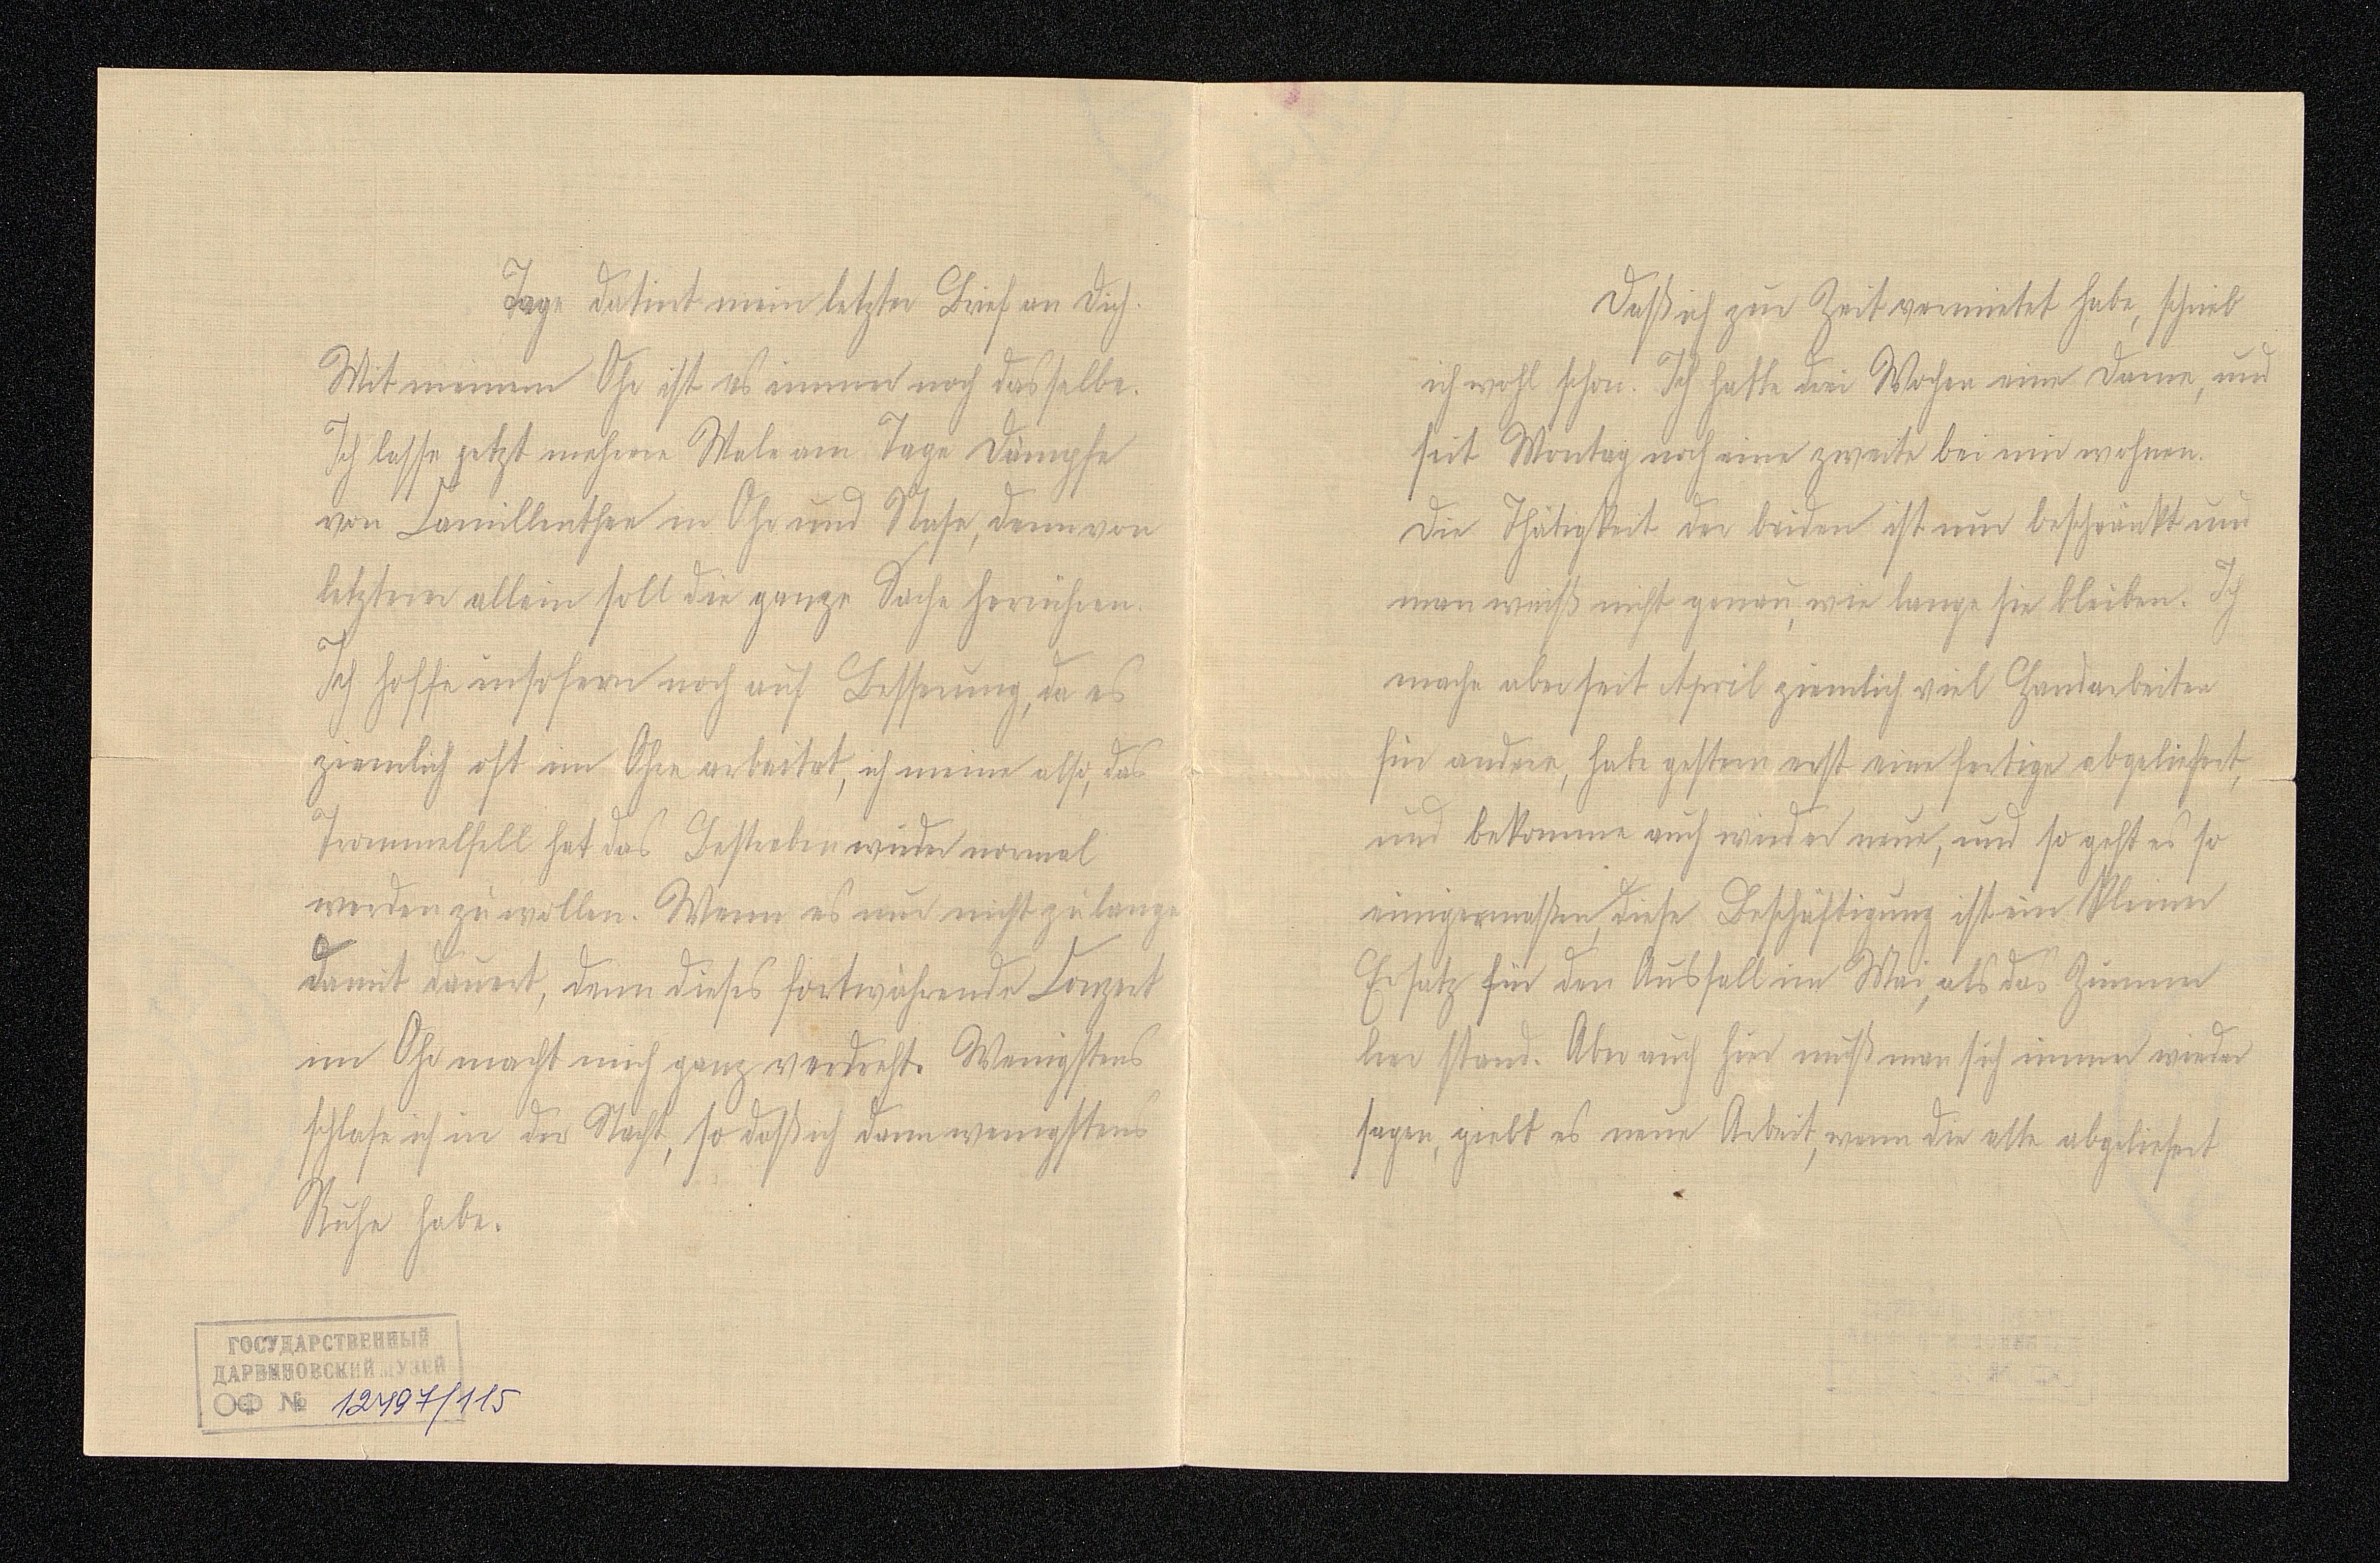 Tage datirt mein letzter Brief an Dich.
Mit meinem Ohr ist es immer noch dasselbe.
Ich lasse jetzt mehrere Male am Tage Dämpfe
von Camillenthee in Ohr und Nase, denn von
letzterer allein soll die ganze Sache herrühren.
Ich hoffe insofern noch auf Besserung, da es
ziemlich oft im Ohre arbeitet, ich meine also, das
Trommelfell hat das Bestreben wieder normal
werden zu wollen. Wenn es nur nicht zu lange
damit dauert, denn dieses fortwährende Conzert
im Ohr macht mich ganz verdreht. Wenigstens
schlafe ich in der Nacht, so daß ich dann wenigstens
Ruhe habe.
ГОСУДАРСТВЕННЫЙ
ДАРВИНОВСКИЙ МУЗЕЙ
ОФ № 12497/115
Daß ich zur Zeit vermietet habe, schrieb
ich wohl schon. Ich hatte drei Wochen eine Dame, und
seit Montag noch eine zweite bei mir wohnen.
Die Thätigkeit der beiden ist nur beschränkt und
man weiß nicht genau, wie lange sie bleiben. Ich
mache aber seit April ziemlich viel Handarbeiten
für andere, habe gestern erst eine fertige abgeliefert,
und bekomme auch wieder neue, und so geht es so
einigermaßen, diese Beschäftigung ist ein kleiner
Ersatz für den Ausfall im Mai, als das Zimmer
leer stand. Aber auch hier muß man sich immer wieder
sagen, giebt es neue Arbeit, wenn die alte abgeliefert